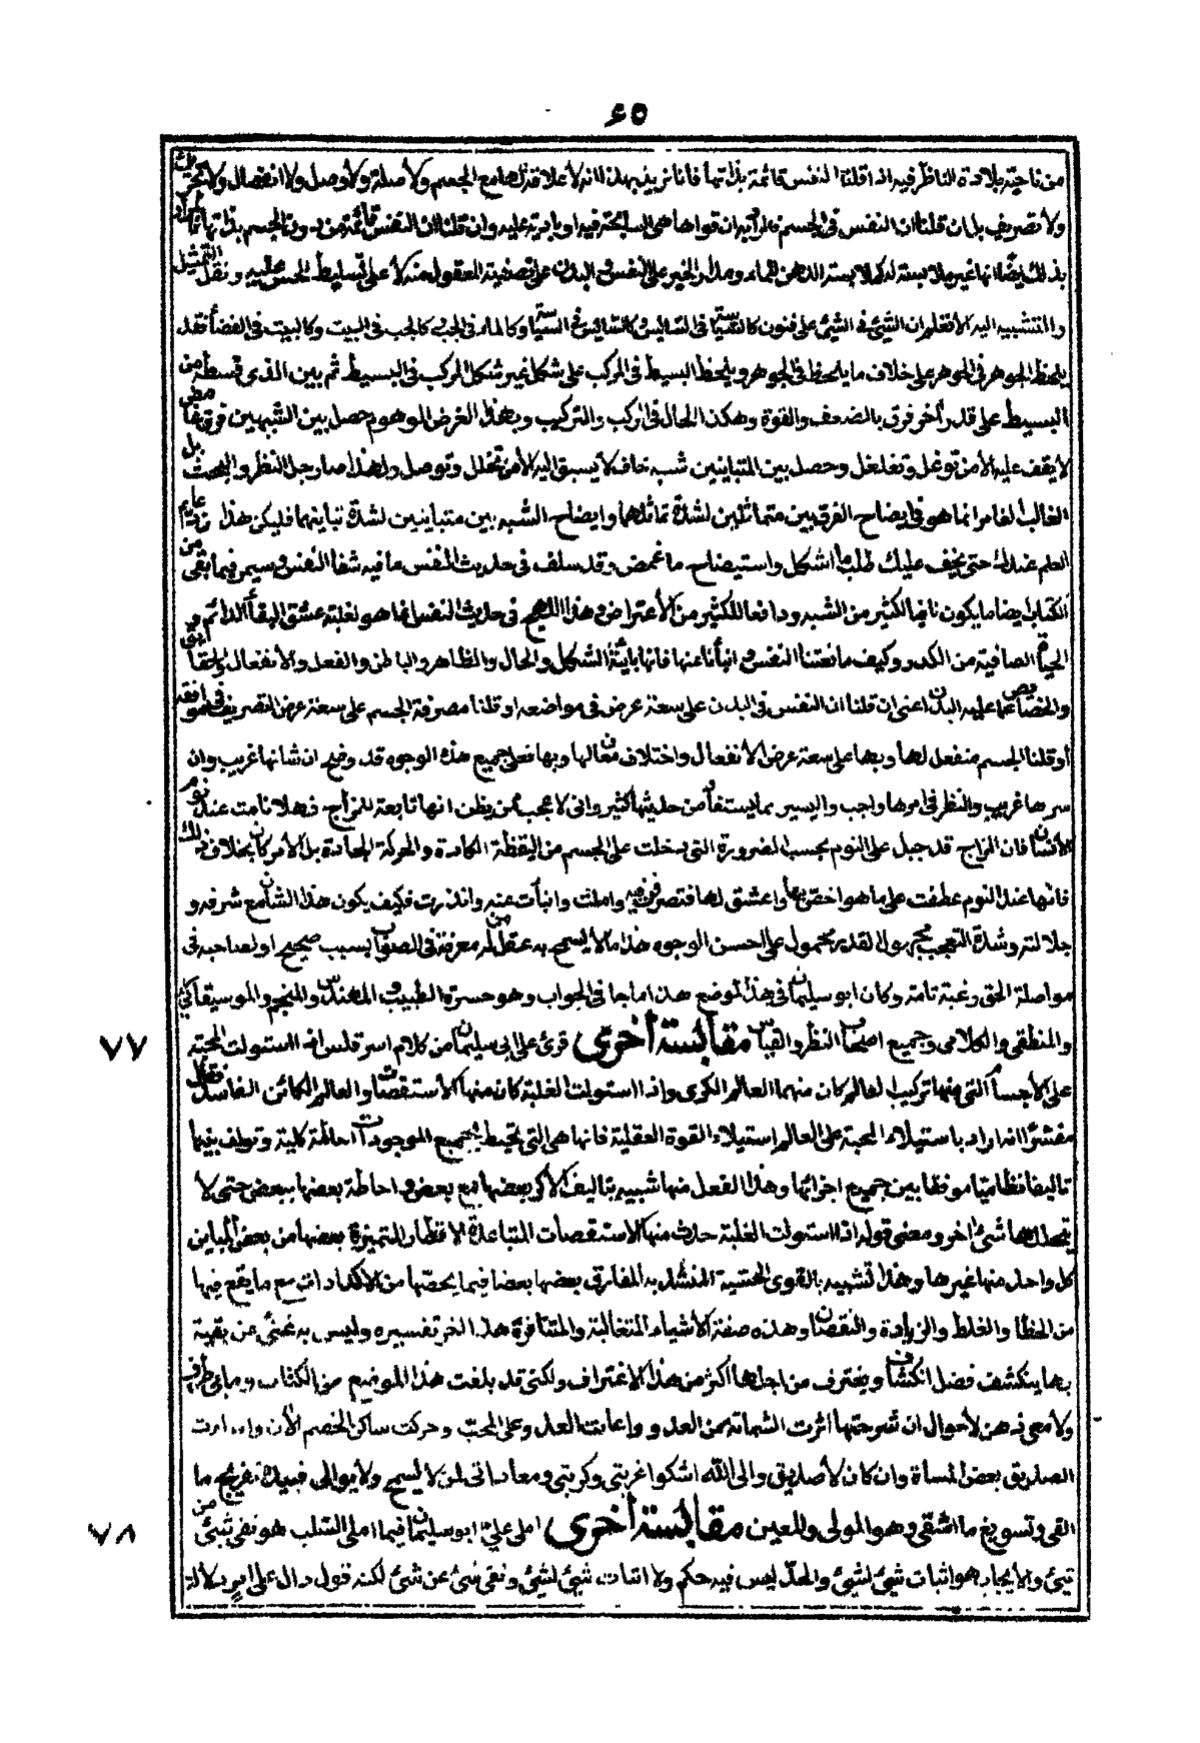 ٤٥
من ناحيته بلا حدة الناظر فيه اذا قلنا النفس قائمة بذاتها فانا نريد بهذا انه لا علاقة لها مع الجسم ولا صلة ولا وصل ولا انفصال ولا
ولا تصريف بل ان قلنا ان النفس في الجسم فالمراد به ان قواها هي السابحة فيه او بادية عليه وان قلنا ان النفس قائمة من دون الجسم بذاتها
بذلك ايضا انها غير ملابسة له كملابسة الدهن للماء ومدار الخبر على النفس في البدن على تصفية العقول منه لا على تسليط الحس عليه ونقل التمثيل
والتشبيه اليه الا تعلم ان الشيء في الشيء على فنون كالستيا في السايس كالسايس في الستيا وكالماء في الجب كالجب في البيت وكالبيت في الفضا فقد
يلحظ الجوهر في الجوهر على خلاف ما يلحظ في الجوهر ويلحظ البسيط في المركب على شكل غير شكل المركب في البسيط ثم بين الذي قسطه من
البسيط على قدر اخر فرق بالضعف والقوة وهكذا الحال في المركب والتركيب وبهذا الغرض الموهوم حصل بين الشبهين فرق
لا يقف عليه الا من توغل وتغلغل وحصل بين المتباينين شبه خاف لا يسبق اليه الا من تخلل وتوصل ولهذا صار جل النظر والبحث بل
الغالب الغامر انما هو في ايضاح الفرق بين متماثلين لشدة تماثلهما وايضاح الشبه بين متباينين لشدة تباينهما فليكن هذا
العلم عندك حتى يخف عليك طلب ما اشكل واستيضاح ما غمض وقد سلف في حديث النفس ما فيه شفا النفس وسيمر فيما بقى من
الكتاب ايضا ما يكون نافيا لكثير من الشبه ودافعا لكثير من الاعتراض وهذا اللهج في حديث النفس انما هو لغلبة عشق البقاء الدائم و
الحياة الصافية من الكدر وكيف ما نعتنا النفس وانبأنا عنها فانها باينة الشكل والحال والظاهر والباطن والفعل والانفعال
والخصائص عما عليه البدن اعني ان قلنا ان النفس في البدن على سعة عرض في مواضعه او قلنا مصرفة الجسم على سعة عرض التصريف في
او قلنا الجسم منفعل لها وبها على سعة عرض الانفعال واختلاف معانيها وبها فعلى جميع هذه الوجوه قد وضح ان شانها غريب وان
سرها غريب والنظر في امرها واجب واليسير مما يستفاد من حديثها كثير واني لاعجب ممن يظن انها تابعة للمزاج فهلا نامت عند نوم
الانسان فان المزاج قد جبل على النوم بحسب الضرورة التي دخلت على الجسم من اليقظة الكادة والحركة الجادة بل الامر كان بخلاف ذلك
فانها عند النوم عطفت على ما هو اخص بها واعشق لها فتصرفت فيه واملت وانبأت عنه وانذرت فكيف يكون هذا الشان مع شرفه و
جلالته وشدة التعجب مجهول القدر محمول على احسن الوجوه هذا ما لا يسمح به عقل من له معرفة في الصواب بسبب صحيح او لصاحبه في
مواصلة الحق رغبة تامة وكان ابو سليمان في هذا الموضع هذا ما جا في الجواب وهو حسرة الطبيب والمهندس والمنجم والموسيقاري
والمنطقي والكلامي وجميع اصحاب النظر والقياس مقابسة أخرى قرئ على ابي سليمان من كلام اسرقلس اذا استولت المحبة ٧٧
على الاجسام التي منها تركيب العالم كان منهما العالم الكري واذا استولت الغلبة كان منها الاستقصات والعالم الكائن الفاسد فقال
مفسرا انه اراد باستيلاء المحبة على العالم استيلاء القوة العقلية فانها هي التي تحيط بجميع الموجودات احاطة كلية وتولف بينها
تاليفا نظاميا موفقا بين جميع اجزائها وهذا الفعل منها شبيه بتاليف الاكر بعضها مع بعض واحاطة بعضها ببعض حتى لا
يتخللها شئ اخر ومعنى قوله اذا استولت الغلبة حدث منها الاستقصات المتباعدة الاقطار المتميزة بعضها من بعض المباين
كل واحد منها غيرها وهذا تشبيه بالقوى الحسية المنشد به المفارق بعضها بعضا فيما يخصها من الادراكات مع ما يقع فيها
من الخطا والغلط والزيادة والنقصان وهذه صفة الاشياء المتغالبة والمتنافرة هذا اخر تفسيره وليس به غنى عن بقية
بها ينكشف فضل انكشاف ويغترف من اجلها اكثر من هذا الاغتراف ولكني قد بلغت هذا الموضع من الكتاب وما بي طرف
ولا معي ذهن لاحوال ان شرحتها اثرت الشماتة من العدو واعانت العدو على المحب وحركت ساكن الخصم الان
الصديق بعض المساة وان كان لا صديق والى الله اشكوا غربتي وكربتي ومعاداتي لمن لا يسمح ولا يوالي فبيده تفريج ما
القى وتسويغ ما اشقى وهو المولى والمعين مقابسة أخرى املى علي ابو سليمان فيما املى السلب هو نفي شئ من ٧٨
شئ والايجاب هو اثبات شئ لشئ والحد ليس فيه حكم ولا اثبات شئ لشئ ونفي شئ عن شئ لكنه قول دال على امر دلالة